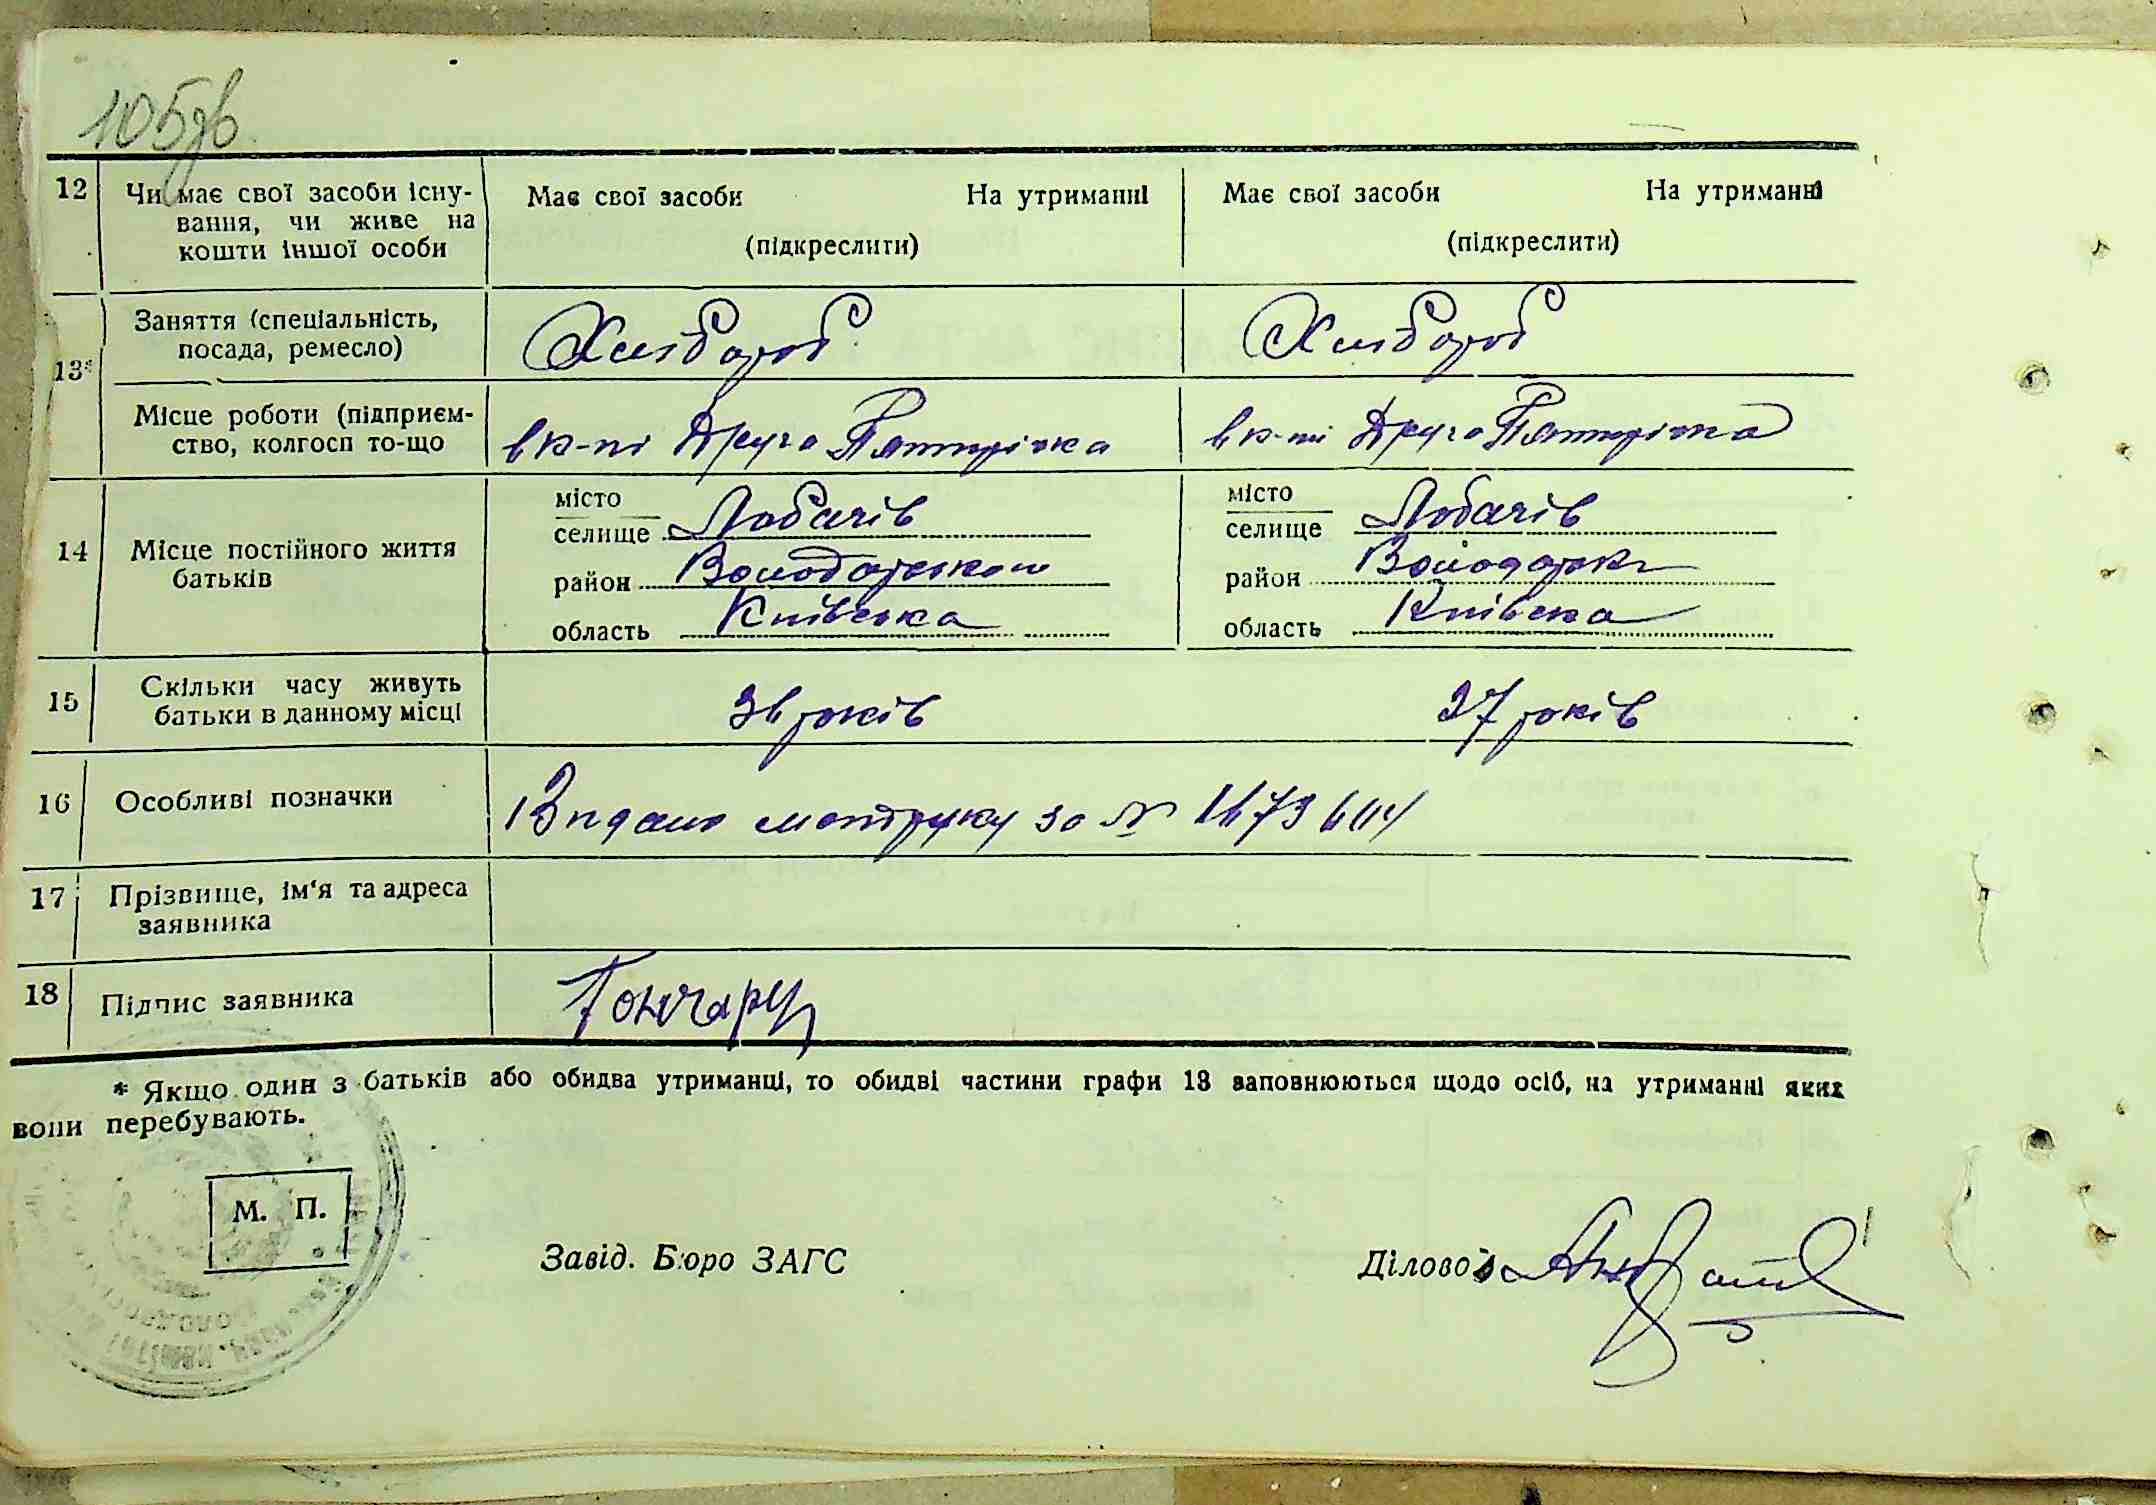 105зв
12 Чи має свої засоби існу-
вання, чи живе на
кошти іншої особи
Має свої засоби На утриманні
(підкреслити)
Має свої засоби На утриманні
(підкреслити)
13* Заняття (спеціальність,
посада, ремесло)
Хлібороб
Хлібороб
Місце роботи (підприєм-
ство, колгосп то-що
в к-пі Друга Пятирічка
в к-пі Друга Пятирічка
14 Місце постійного життя
батьків
місто
селище Лобачів
район Володарського
область Київська
місто
селище Лобачів
район Володарськ
область Київська
15 Скільки часу живуть
батьки в данному місці
років
27 років
16 Особливі позначки
Видано метрику за №
17 Прізвище, ім'я та адреса
заявника
18 Підпис заявника
Гончарук
* Якщо один з батьків або обидва утриманці, то обидві частини графи 13 заповнюються щодо осіб, на утриманні яких
вони перебувають.
М. П.
Завід. Бюро ЗАГС
Діловод